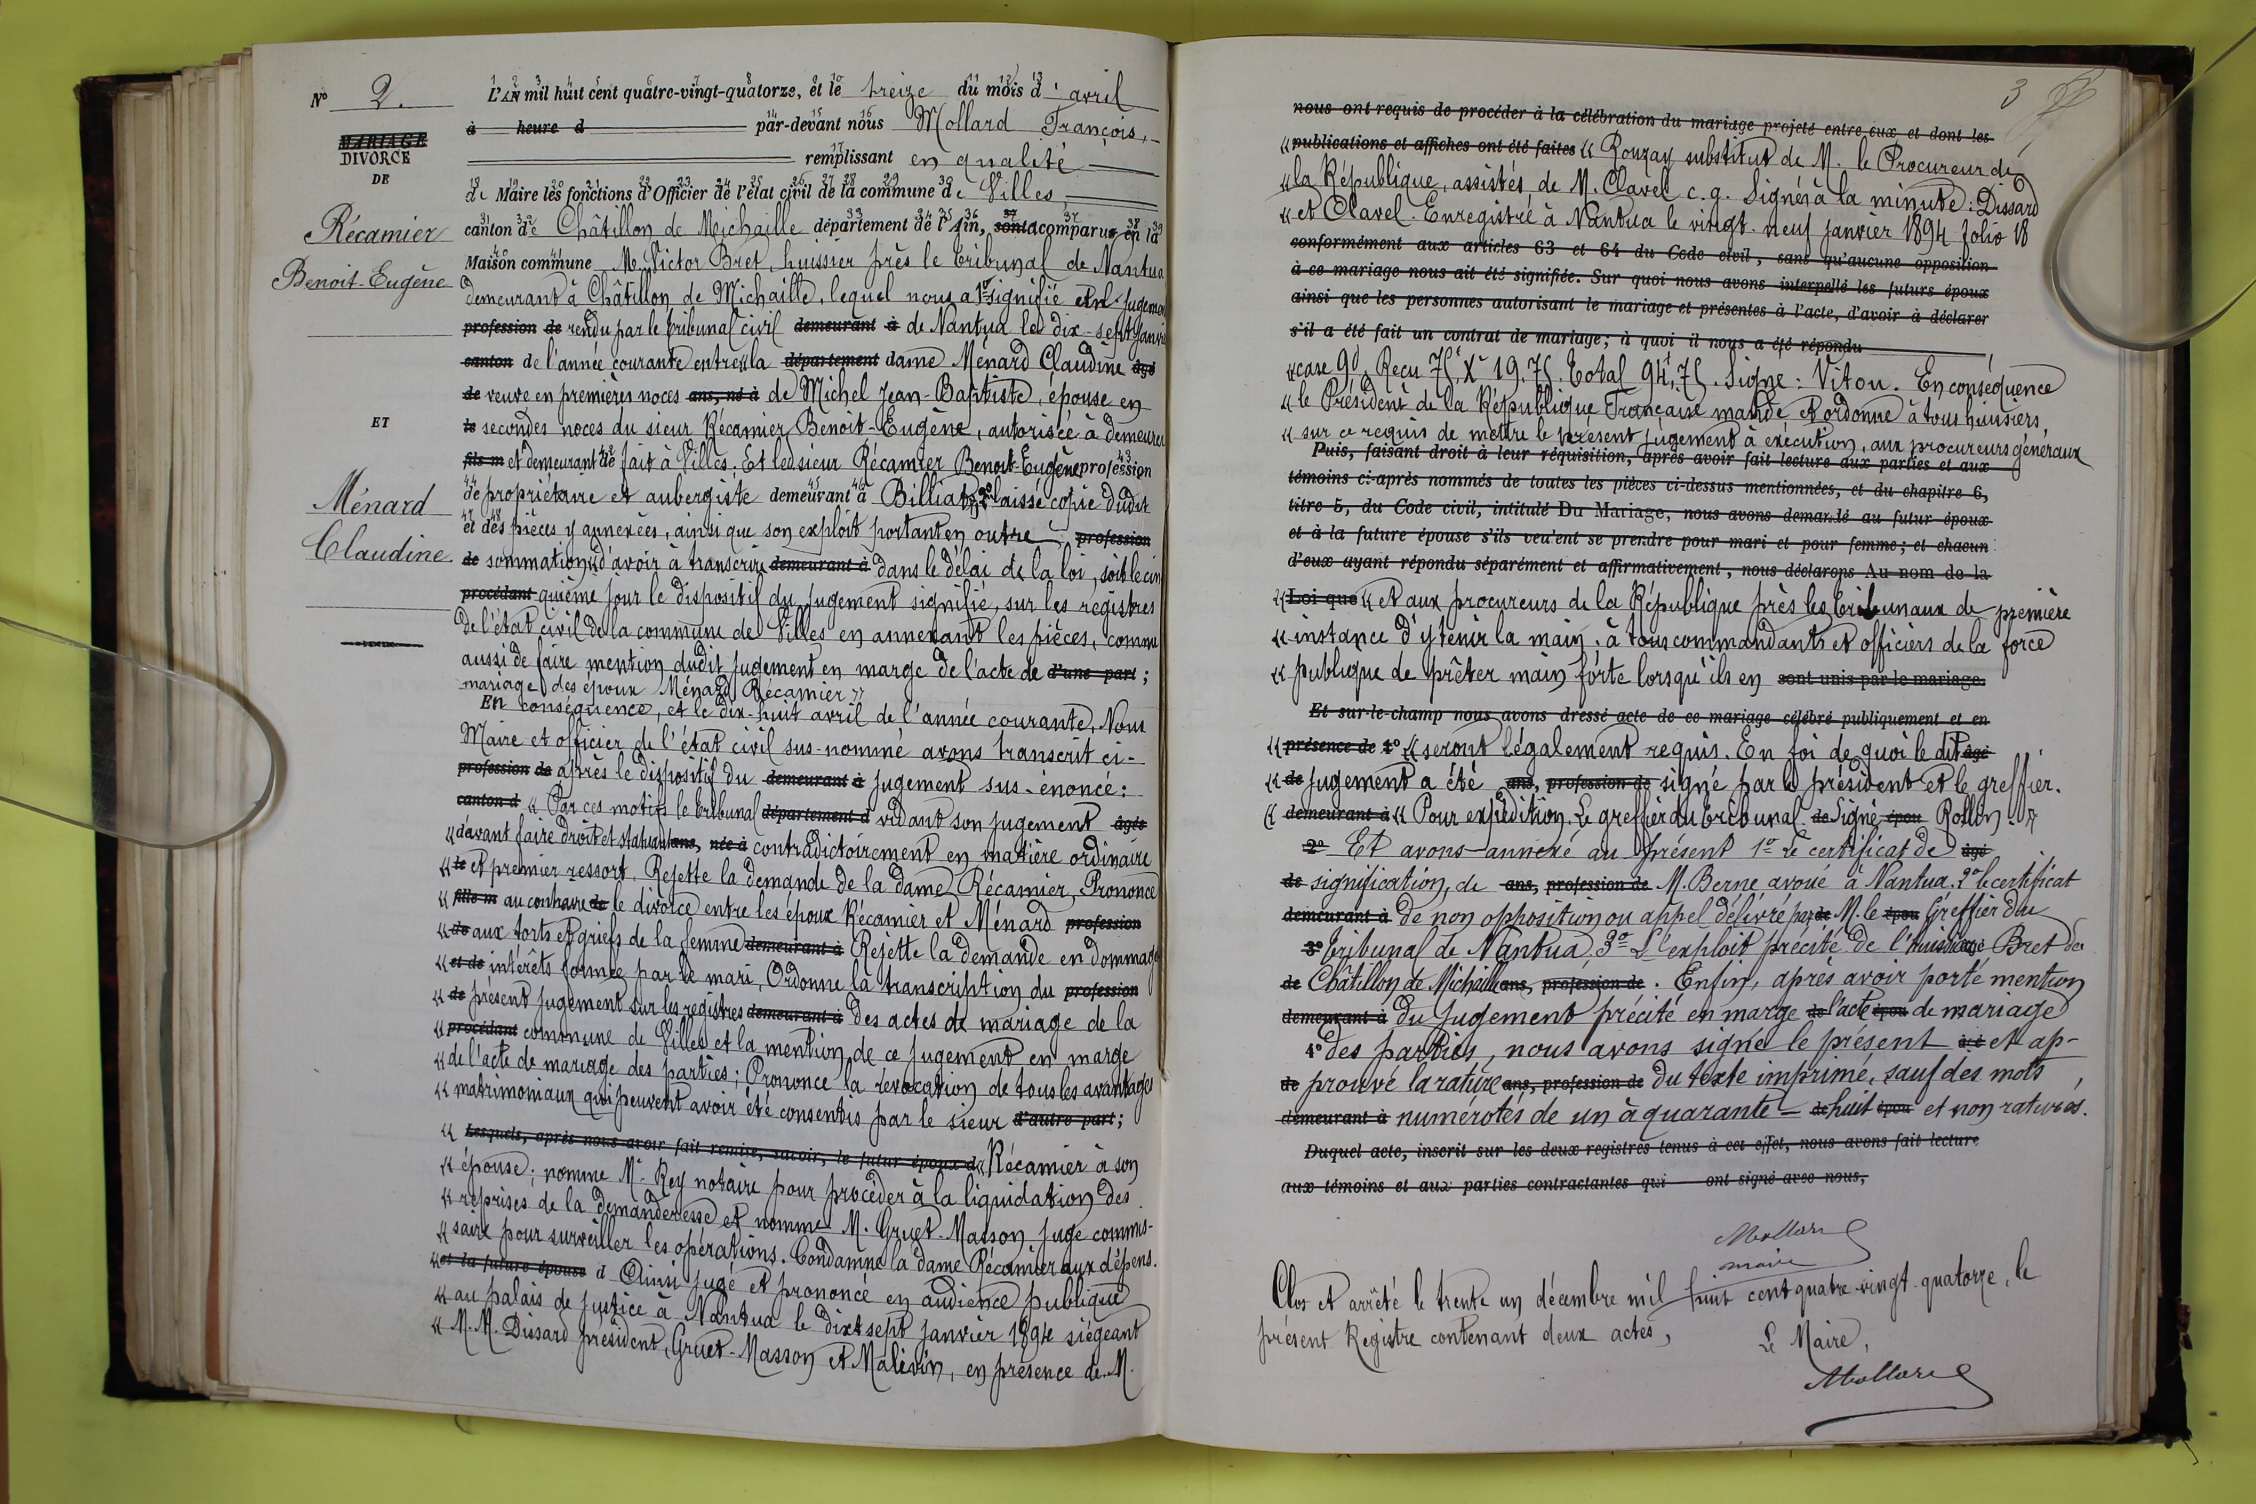 N° 2.
MARIAGE
DIVORCE
DE
Récamier
Benoit-Eugène
ET
Ménard
Claudine
L'AN mil huit cent quatre-vingt-quatorze, et le treize du mois d'avril
à heure d par-devant nous Mollard François,
remplissant en qualité
de Maire les fonctions d'Officier de l'état civil de la commune de Villes,
canton de Châtillon de Michaille département de l'Ain, sont a comparu en la
Maison commune M. Victor Bret, huissier près le tribunal de Nantua
demeurant à Châtillon de Michaille, lequel nous a 1° signifié un jugement
profession de rendu par le tribunal civil demeurant à de Nantua le dix-sept janvier
canton de l'année courante entre la département dame Ménard Claudine âgé
de veuve en premières noces ans, né à de Michel Jean-Baptiste, épouse en
le secondes noces du sieur Récamier Benoit-Eugène, autorisée à demeurer
fils m et demeurant de fait à Villes. Et ledsieur Récamier Benoit-Eugène profession
de propriétaire et aubergiste demeurant à Billiat, 2° laisse copie dudit
et des pièces y annexées, ainsi que son exploit portant en outre profession
de sommation d'avoir à transcrire demeurant à dans le délai de la loi, soit le cin
procédant quième jour le dispositif du jugement signifié, sur les registres
de l'état civil de la commune de Villes en annexant les pièces, comme
aussi de faire mention dudit jugement en marge de l'acte de d'une part;
mariage des époux Ménard Récamier »
En conséquence, et le dix-huit avril de l'année courante, Nous
Maire et officier de l'état civil sus-nommé avons transcrit ci-
profession de après le dispositif du demeurant à jugement sus-énoncé:
canton d « Par ces motifs le tribunal département d vidant son jugement âgée
« d'avant faire droit et statuant ans, née à contradictoirement en matière ordinaire
« le et premier ressort. Rejette la demande de la dame Récamier, Prononce
« fille m au contraire de le divorce entre les époux Récamier et Ménard profession
« de aux torts et griefs de la femme demeurant à Rejette la demande en dommages
« et de intérêts formée par le mari, Ordonne la transcription du profession
« de présent jugement sur les registres demeurant à des actes de mariage de la
« procédant commune de Villes et la mention de ce jugement en marge
« de l'acte de mariage des parties; Prononce la révocation de tous les avantages
« matrimoniaux qui peuvent avoir été consentis par le sieur d'autre part;
« Lesquels, après nous avoir fait remise, savoir, le futur époux d « Récamier à son
« épouse; nomme Me Rey notaire pour procéder à la liquidation des
« reprises de la demanderesse et nomme M. Gruet-Masson juge commis-
« saire pour surveiller les opérations. Condamne la dame Récamier aux dépens.
« et la future épouse d Ainsi jugé et prononcé en audience publique
« au palais de justice à Nantua le dix sept janvier 1894 siégeant
« M.M. Dissard président, Gruet-Masson et Malevin, en présence de M.
3
nous ont requis de procéder à la célébration du mariage projeté entre eux et dont les
« publications et affiches ont été faites « Rouzay substitut de M. le Procureur de
« la République, assistés de M. Clavel c. g. Signés à la minute: Dissard
« et Clavel. Enregistré à Nantua le vingt-neuf janvier 1894 folio 18
conformément aux articles 63 et 64 du Code civil, sans qu'aucune opposition
à ce mariage nous ait été signifiée. Sur quoi nous avons interpellé les futurs époux
ainsi que les personnes autorisant le mariage et présentes à l'acte, d'avoir à déclarer
s'il a été fait un contrat de mariage; à quoi il nous a été répondu
« case 9. Reçu 75 Xes 19.75. Total 94,75. Signé: Vitou. En conséquence
« le Président de la République Française mande et ordonne à tous huissiers,
« sur ce requis de mettre le présent jugement à exécution, aux procureurs généraux
Puis, faisant droit à leur réquisition, après avoir fait lecture aux parties et aux
témoins ci-après nommés de toutes les pièces ci-dessus mentionnées, et du chapitre 6,
titre 5, du Code civil, intitulé Du Mariage, nous avons demandé au futur époux
et à la future épouse s'ils veulent se prendre pour mari et pour femme; et chacun
d'eux ayant répondu séparément et affirmativement, nous déclarons Au nom de la
« Loi que « et aux procureurs de la République près les tribunaux de première
« instance d'y tenir la main, à tous commandants et officiers de la force
« publique de prêter main forte lorsqu'ils en sont unis par le mariage.
Et sur-le-champ nous avons dressé acte de ce mariage célébré publiquement et en
« présence de 1° « seront légalement requis. En foi de quoi le dit âgé
« de jugement a été ans, profession de signé par le président et le greffier.
« demeurant à « Pour expédition, Le greffier du tribunal de Signé épou Rollon. »
2° Et avons annexé au présent 1° le certificat de âgé
de signification, de ans, profession de M. Berne avoué à Nantua. 2° le certificat
demeurant à de non opposition ou appel délivré par de M. le épou Greffier du
3° tribunal de Nantua. 3° L'exploit précité de l'huissier âgé Bret de
de Châtillon de Michaille ans, profession de. Enfin, après avoir porté mention
demeurant à du jugement précité en marge de l'acte épou de mariage
4° des parties, nous avons signé le présent âgé et ap-
de prouvé la rature ans, profession de du texte imprimé, sauf des mots
demeurant à numérotés de un à quarante- de huit épou et non raturés.
Duquel acte, inscrit sur les deux registres tenus à cet effet, nous avons fait lecture
aux témoins et aux parties contractantes qui ont signé avec nous,
Mollard
maire
Clos et arrêté le trente un décembre mil huit cent quatre-vingt-quatorze, le
présent Registre contenant deux actes,
Le Maire,
Mollard